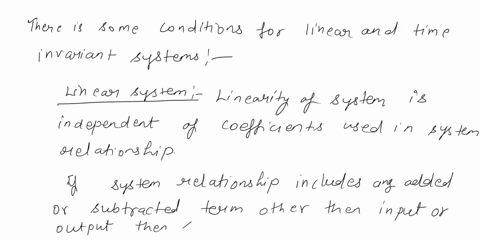 There is some conditions for linear and time
invariant systems:-
Linear system:- Linearity of system is
independent of coefficients used in system
relationship.
If system relationship includes any added
or subtracted term other then input or
output then